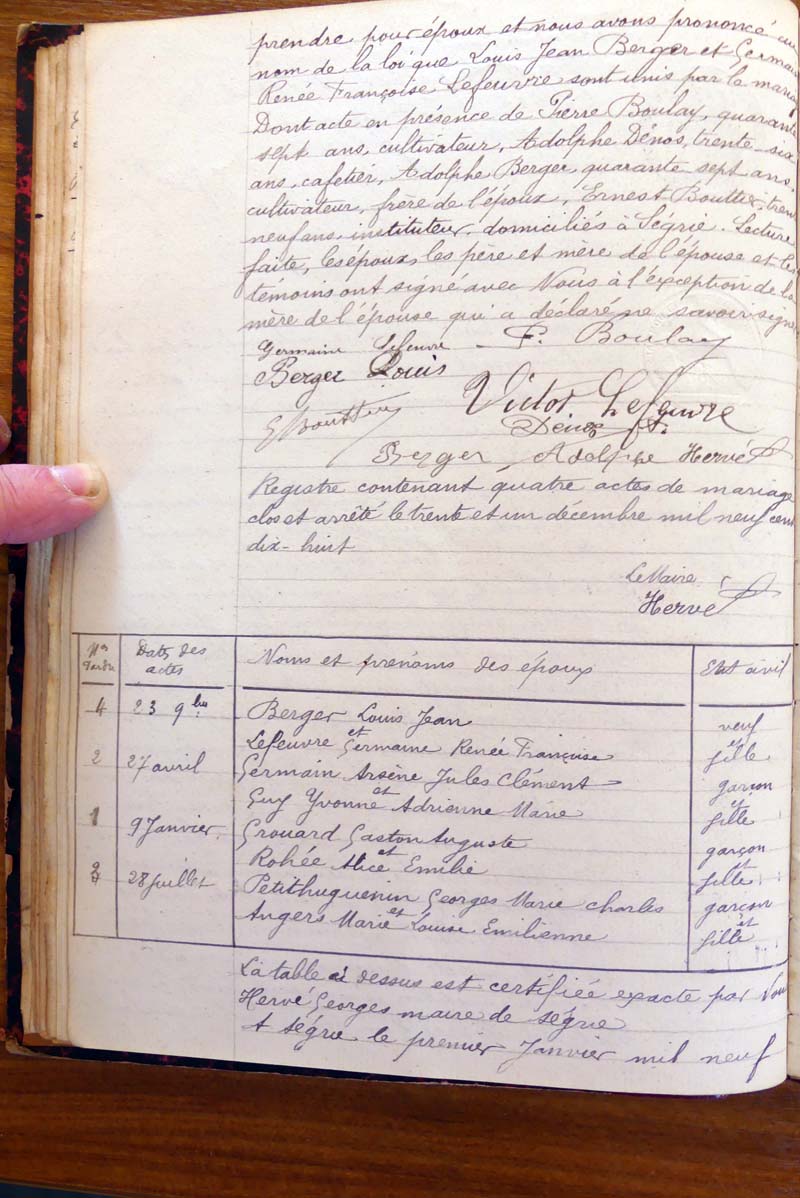 prendre pour époux et nous avons prononcé au
nom de la loi que Louis Jean Berger et Germaine
Renée Françoise Lefeuvre sont unis par le mariag
Dont acte en présence de Pierre Boulay, quarante
sept ans, cultivateur, Adolphe Dénos, trente-six
ans, cafetier, Adolphe Berger, quarante sept ans,
cultivateur, frère de l'époux, Ernest Bouttier, trent
neuf ans, instituteur, domiciliés à Ségrie. Lecture
faite, les époux, les père et mère de l'épouse et les
témoins ont signé avec Nous à l'exception de la
mère de l'épouse qui a déclaré ne savoir signe
Germaine Lefeuvre P. Boulay
Berger Louis
Victor Lefeuvre
E Bouttier Dénos A.
Berger Adolphe Hervé
Registre contenant quatre actes de mariage
clos et arrêté le trente et un décembre mil neuf cent
dix-huit
Le Maire
Hervé
Nos d'ordre
Dates des actes
Noms et prénoms des époux
Etat civil
4 23 9bre Berger Louis Jean veuf
et et
Lefeuvre Germaine Renée Françoise fille
2 27 avril Germain Arsène Jules Clément garçon
et et
Guy Yvonne Adrienne Marie fille
1 9 Janvier Grouard Gaston Auguste garçon
et et
Rohée Alice Emilie fille
3 28 Juillet Petithuguenin Georges Marie Charles garçon
et et
Angers Marie Louise Emilienne fille
La table ci dessus est certifiée exacte par Nous
Hervé Georges maire de Ségrie
A Ségrie le premier Janvier mil neuf